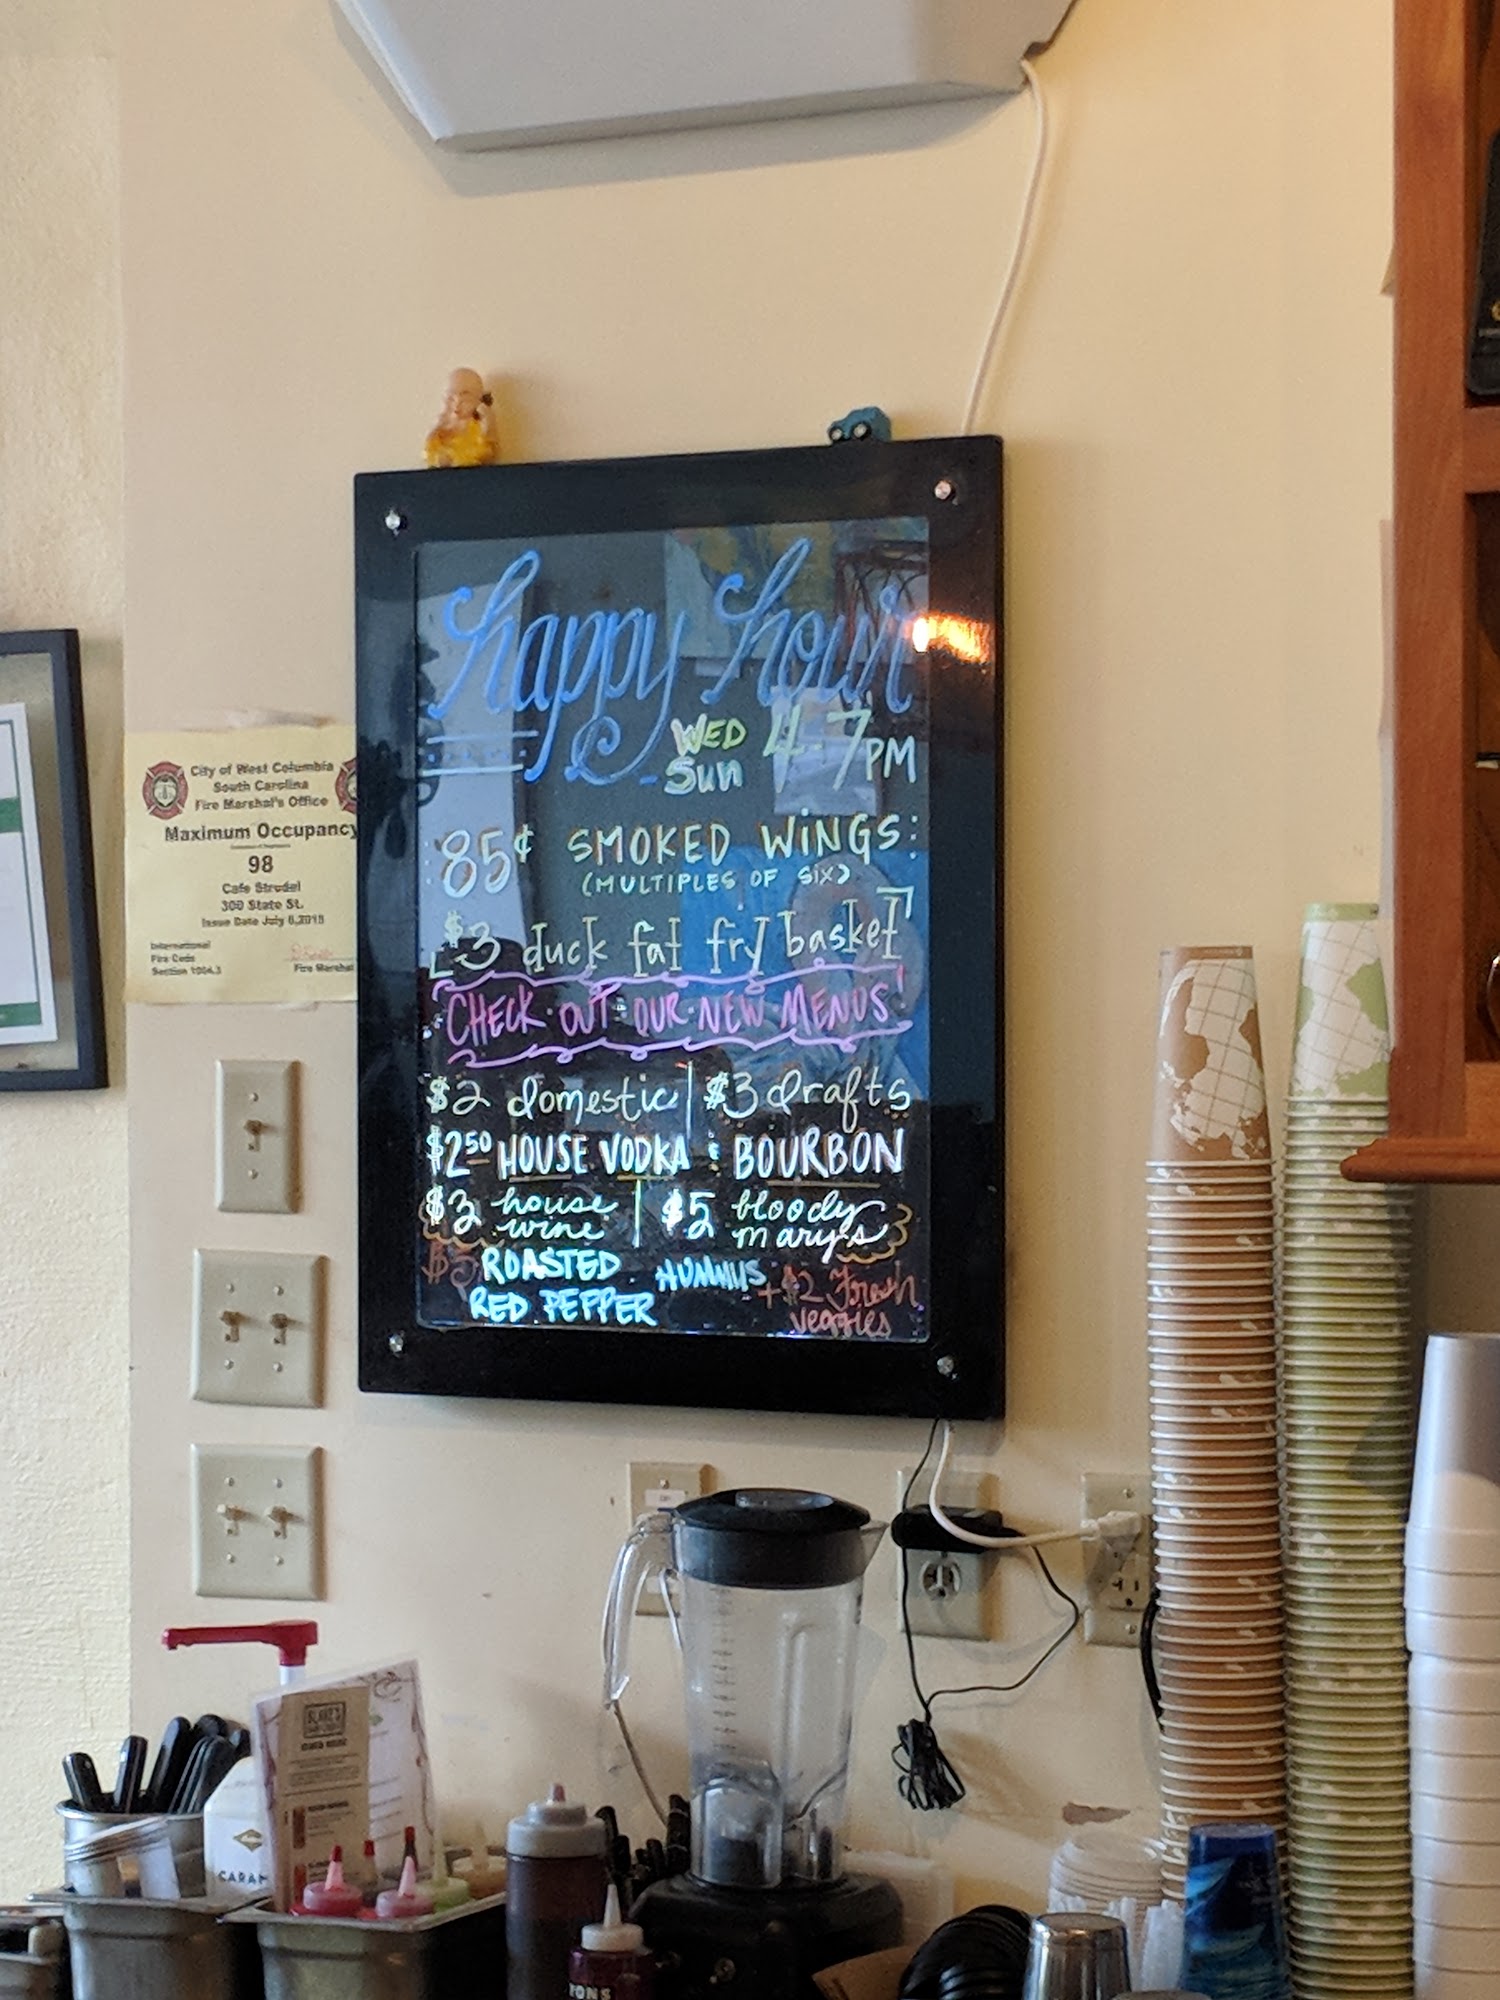 happy hour
WED 4-7PM
Sun
85¢ SMOKED WiNGS:
(MULTIPLES OF SiX)
$3 duck fat fry basket
CHECK OUT OUR NEW MENUS!
$2 domestic | $3 drafts
$2.50 HOUSE VODKA : BOURBON
$3 house wine | $5 bloody mary's
$5 ROASTED RED PEPPER HUMMUS +$2 Fresh veggies
City of West Columbia
South Carolina
Fire Marshal's Office
Maximum Occupancy
98
Cafe Strudel
300 State St.
International
Fire Code
Section 1004.3
Fire Marshal
BLAKE'S
CARAM